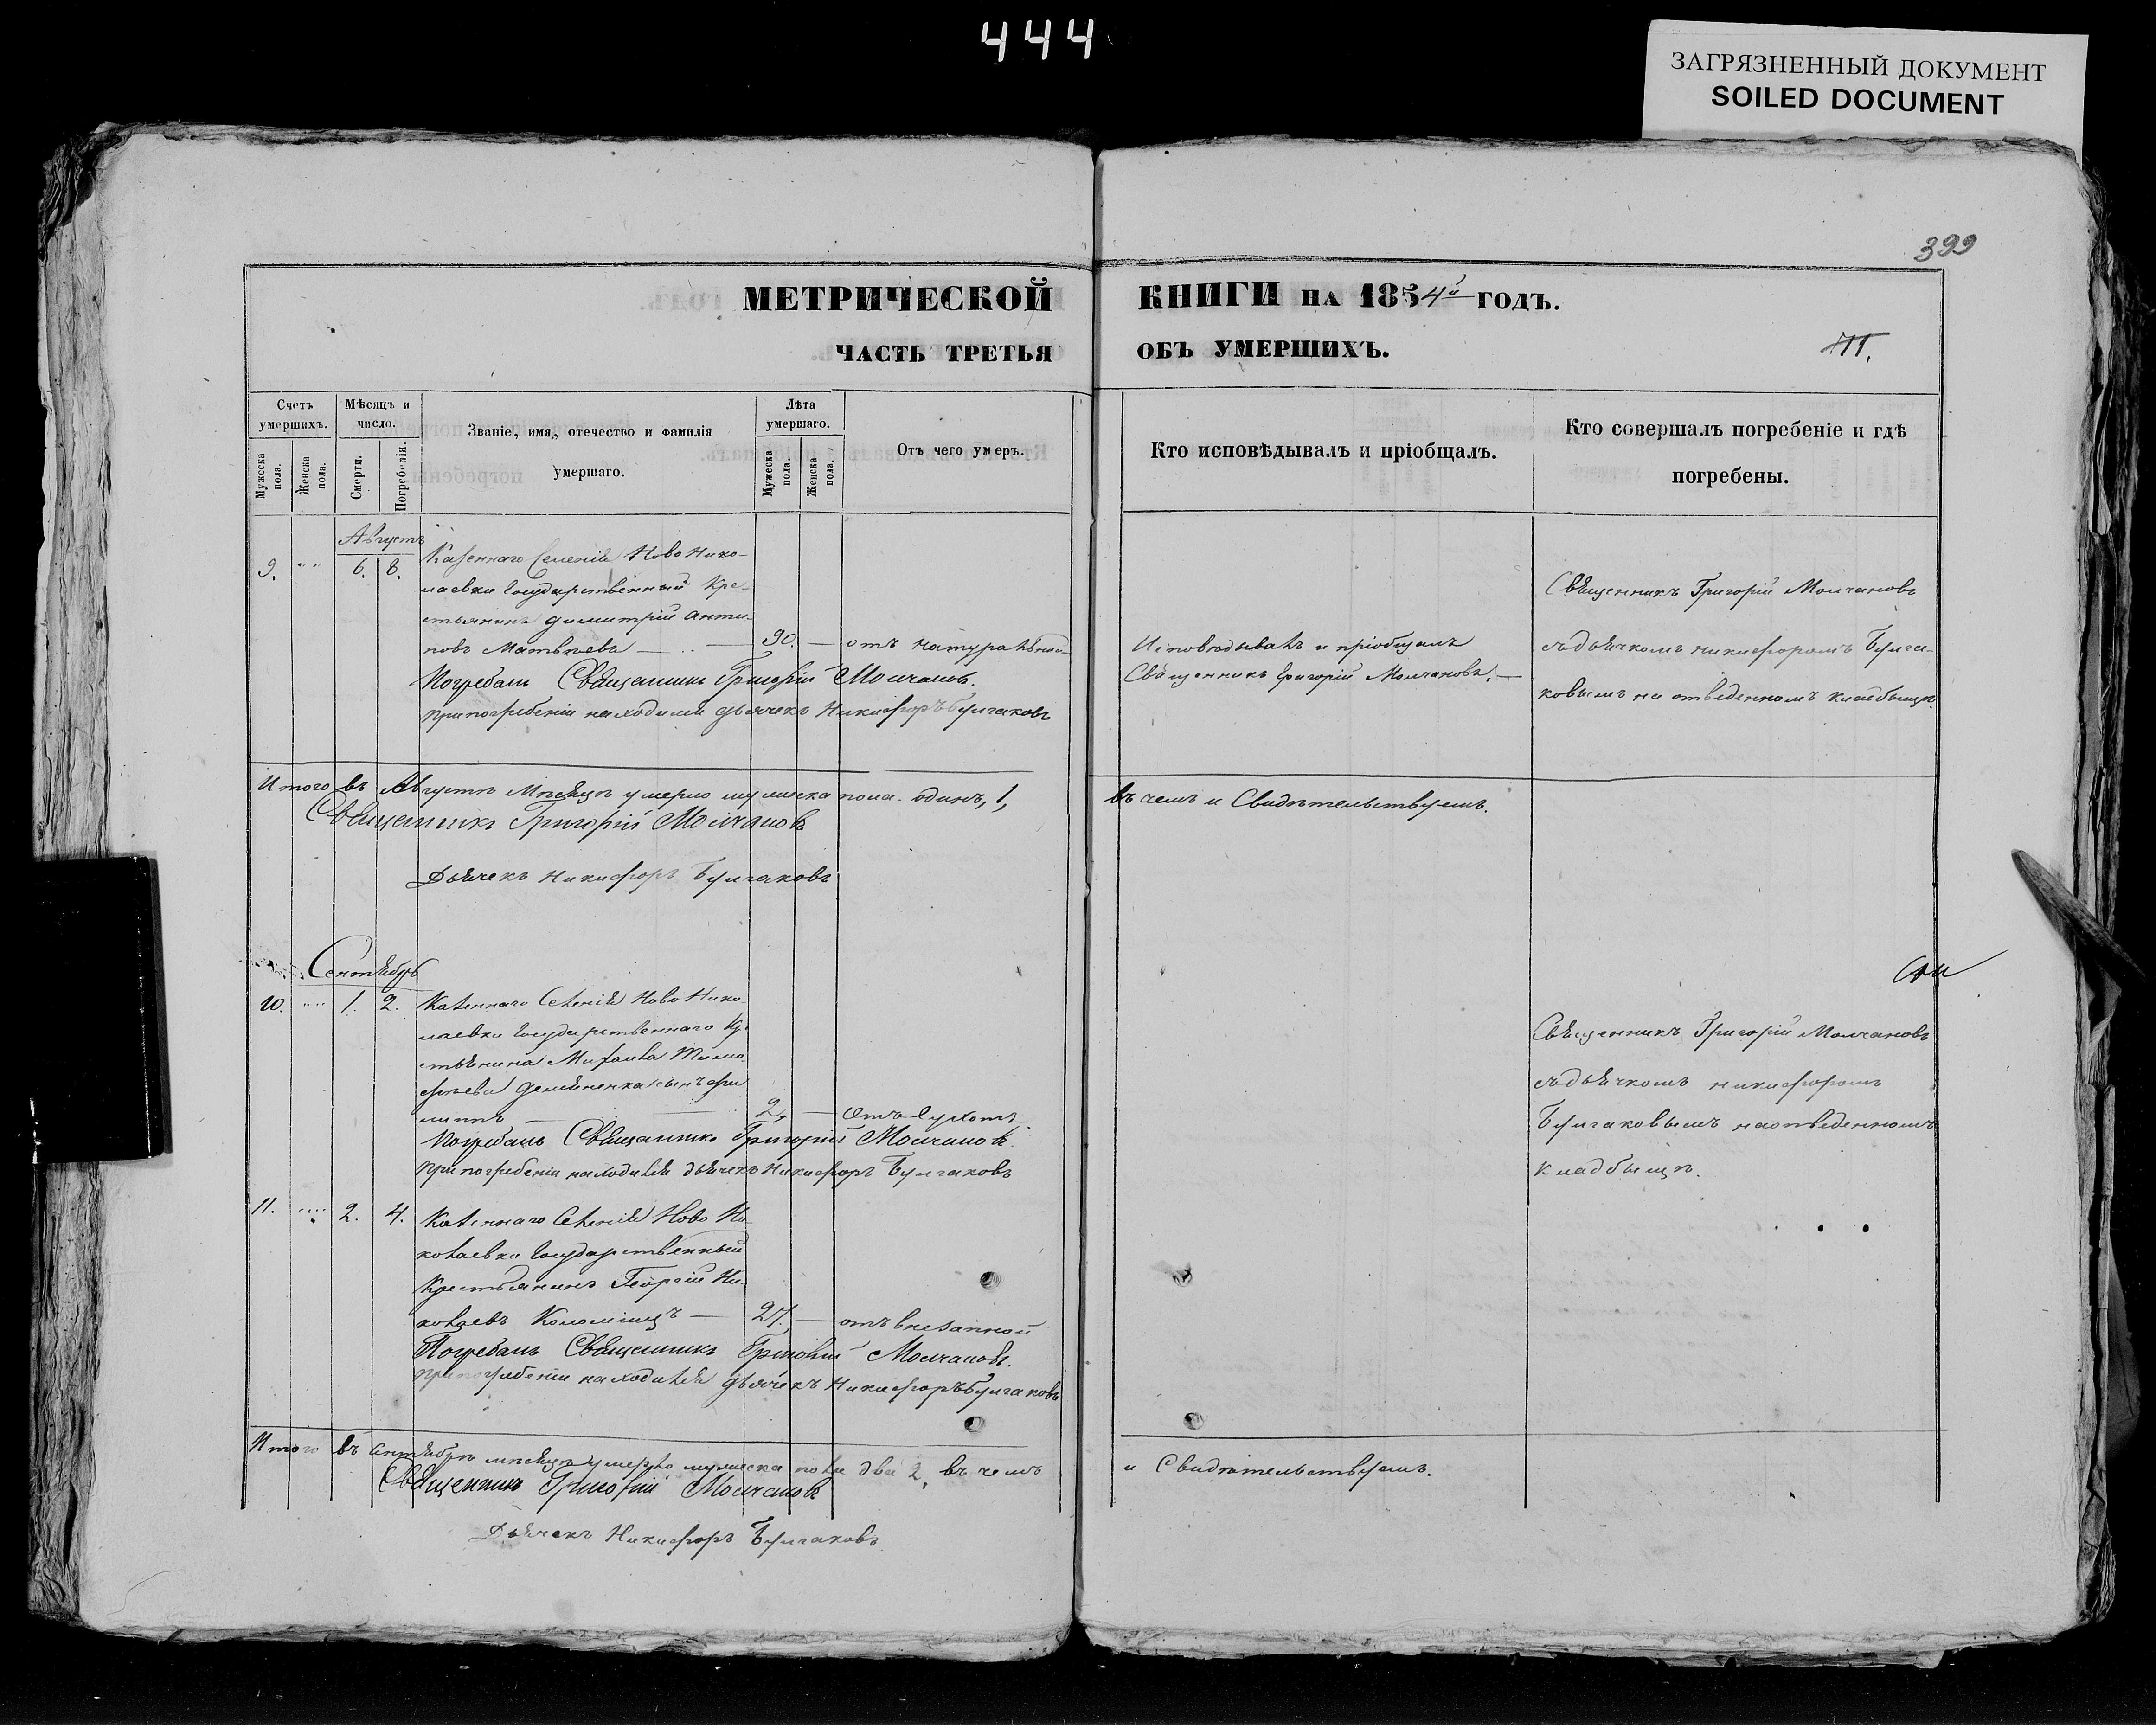 444
ЗАГРЯЗНЕННЫЙ ДОКУМЕНТ
SOILED DOCUMENT
399
МЕТРИЧЕСКОЙ КНИГИ НА 1854й ГОДЪ.
ЧАСТЬ ТРЕТЬЯ ОБЪ УМЕРШИХЪ.
Счетъ умершихъ.
Мужеска пола.
Женска пола.
Мѣсяцъ и число.
Смерти.
Погребенія.
Званіе, имя, отечество и фамилія умершаго.
Лѣта умершаго.
Мужеска пола.
Женска пола.
Отъ чего умеръ.
Кто исповѣдывалъ и пріобщалъ.
Кто совершалъ погребеніе и гдѣ погребены.
Августъ
9. " " 6. 8. Казеннаго Селенія Ново Нико-
лаевки Государственный Кре-
стьянинъ Димитрій Анти-
повъ Матвѣевъ — 90. — отъ натуральной
Погребалъ Священникъ Григорій Молчановъ.
при погребеніи находился дьячекъ Никифоръ Булгаковъ
Исповѣдывалъ и пріобщалъ
Священникъ Григорій Молчановъ. —
Священникъ Григорій Молчановъ
съ дьячкомъ Никифоромъ Булга-
ковымъ на отведенномъ кладбищѣ.
Итого въ Августѣ Мѣсяцѣ умерло мужеска пола одинъ, 1, въ чемъ и Свидѣтельствуемъ.
Священникъ Григорій Молчановъ
Дьячекъ Никифоръ Булгаковъ
Сентябрь
10. " " 1. 2. Казеннаго Селенія Ново Нико-
лаевки Государственнаго Кр-
стьянина Михаила Тимо-
фѣева Демяненка сынъ Фи-
липпъ — 2. — отъ сухотъ
Погребалъ Священникъ Григорій Молчановъ.
При погребеніи находился дьячекъ Никифоръ Булгаковъ
Священникъ Григорій Молчановъ
съ дьячкомъ Никифоромъ
Булгаковымъ на отведенномъ
кладбищѣ.
11. " " 2. 4. Казеннаго Селенія Ново Ни-
колаевки Государственный
Крестьянинъ Георгій Ни-
колаевъ Коломіецъ — 27. — отъ внезапной
Погребалъ Священникъ Григорій Молчановъ.
При погребеніи находился дьячекъ Никифоръ Булгаковъ
Итого въ Сентябрѣ мѣсяцѣ умерло мужеска пола два 2, въ чемъ и Свидѣтельствуемъ.
Священникъ Григорій Молчановъ
Дьячекъ Никифоръ Булгаковъ